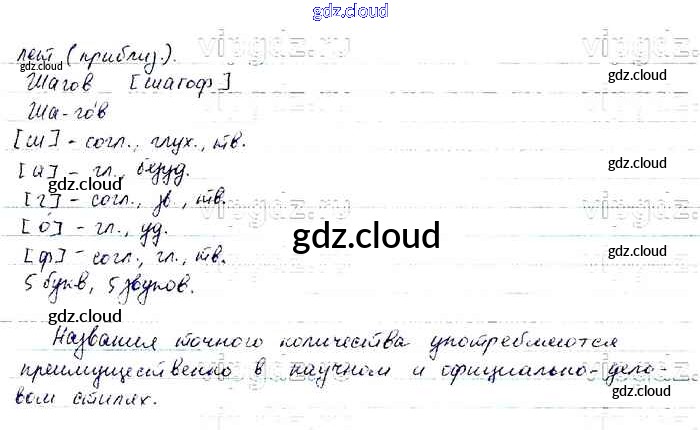 gdz.cloud
лет (приблиз.).
Шагов [шагоф]
Ша-го́в
[ш] - согл., глух., тв.
[а] - гл., безуд.
[г] - согл., зв., тв.
[о́] - гл., уд.
[ф] - согл., гл., тв.
5 букв, 5 звуков.
Названия точного количества употребляются
преимущественно в научном и официально-дело-
вом стилях.
vipgdz.ru
gdz.cloud
gdz.cloud
gdz.cloud
gdz.cloud
vipgdz.ru
gdz.cloud
gdz.cloud
gdz.cloud
gdz.cloud
vipgdz.ru
gdz.cloud
gdz.cloud